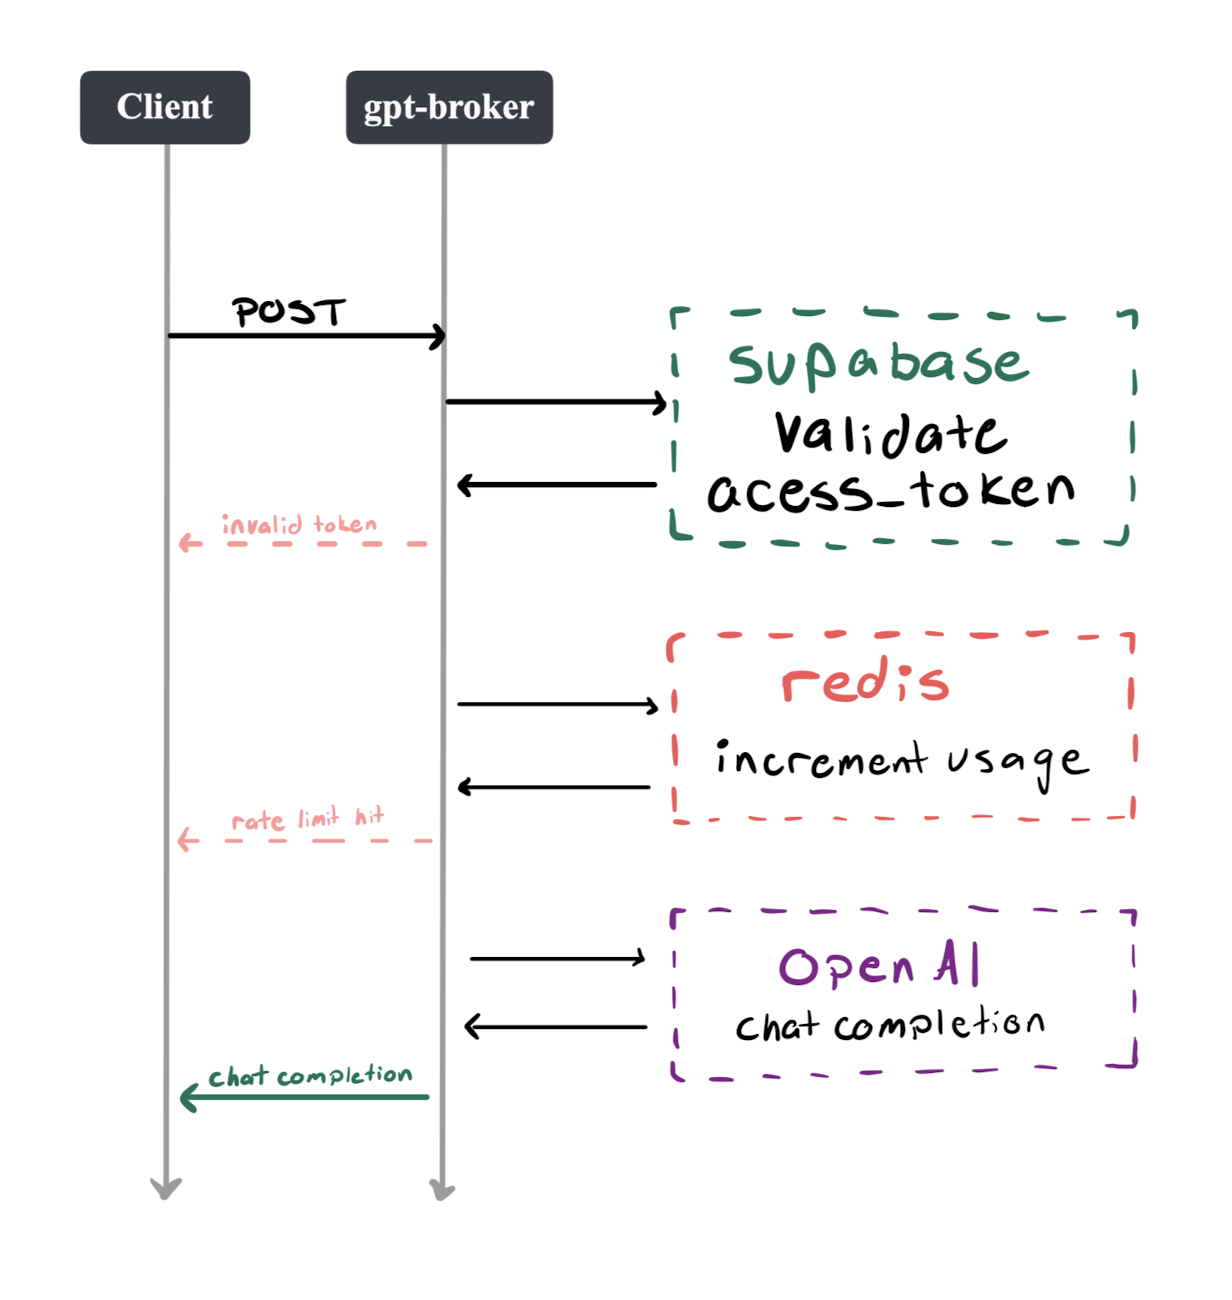 Client
gpt-broker
POST
supabase
validate
acess_token
invalid token
redis
increment usage
rate limit hit
Open AI
chat completion
chat completion